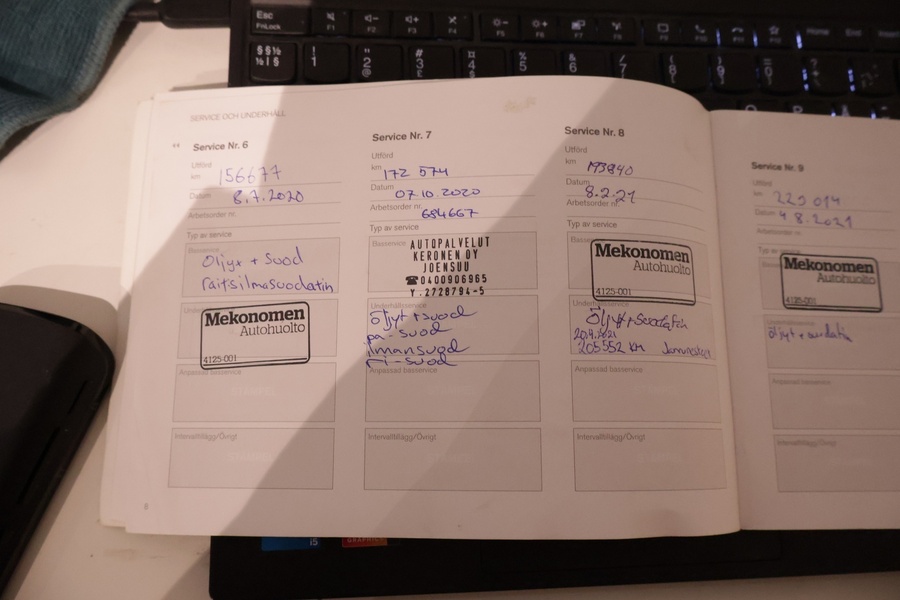 SERVICE OCH UNDERHÅLL
Service Nr. 6
Utförd
km 156677
Datum 8.7.2020
Arbetsorder nr.
Typ av service
Basservice
Öljyt + suod
raitisilmasuodatin
Mekonomen
Autohuolto
4125-001
Anpassad basservice
Intervalltillägg/Övrigt
Service Nr. 7
Utförd
km 172 574
Datum 07.10.2020
Arbetsorder nr. 684667
Typ av service
Basservice
AUTOPALVELUT
KERONEN OY
JOENSUU
☎0400906965
Y.2728794-5
Underhållsservice
öljyt + suod
pa-suod
ilmansuod
ri-suod
Anpassad basservice
Intervalltillägg/Övrigt
Service Nr. 8
Utförd
km 193840
Datum 8.2.21
Arbetsorder nr.
Typ av service
Mekonomen
Autohuolto
4125-001
Öljyt + Suodatin
20.4.2021
205552 km
Anpassad basservice
Intervalltillägg/Övrigt
Service Nr. 9
Utförd
km 225 014
Datum 4 8.2021
Arbetsorder nr.
Typ av service
Mekonomen
Autohuolto
4125-001
Underhållsservice
öljyt + suodatin
Anpassad basservice
Intervalltillägg/Övrigt
8
Esc
FnLock
F1
F2
F3
F4
F5
F6
F7
Home
End
Insert
1
2
3
4
5
6
7
i5
GRAPHICS